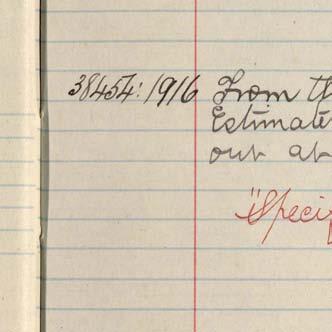 38454:1916 From th
Estimate
out at
"Speci